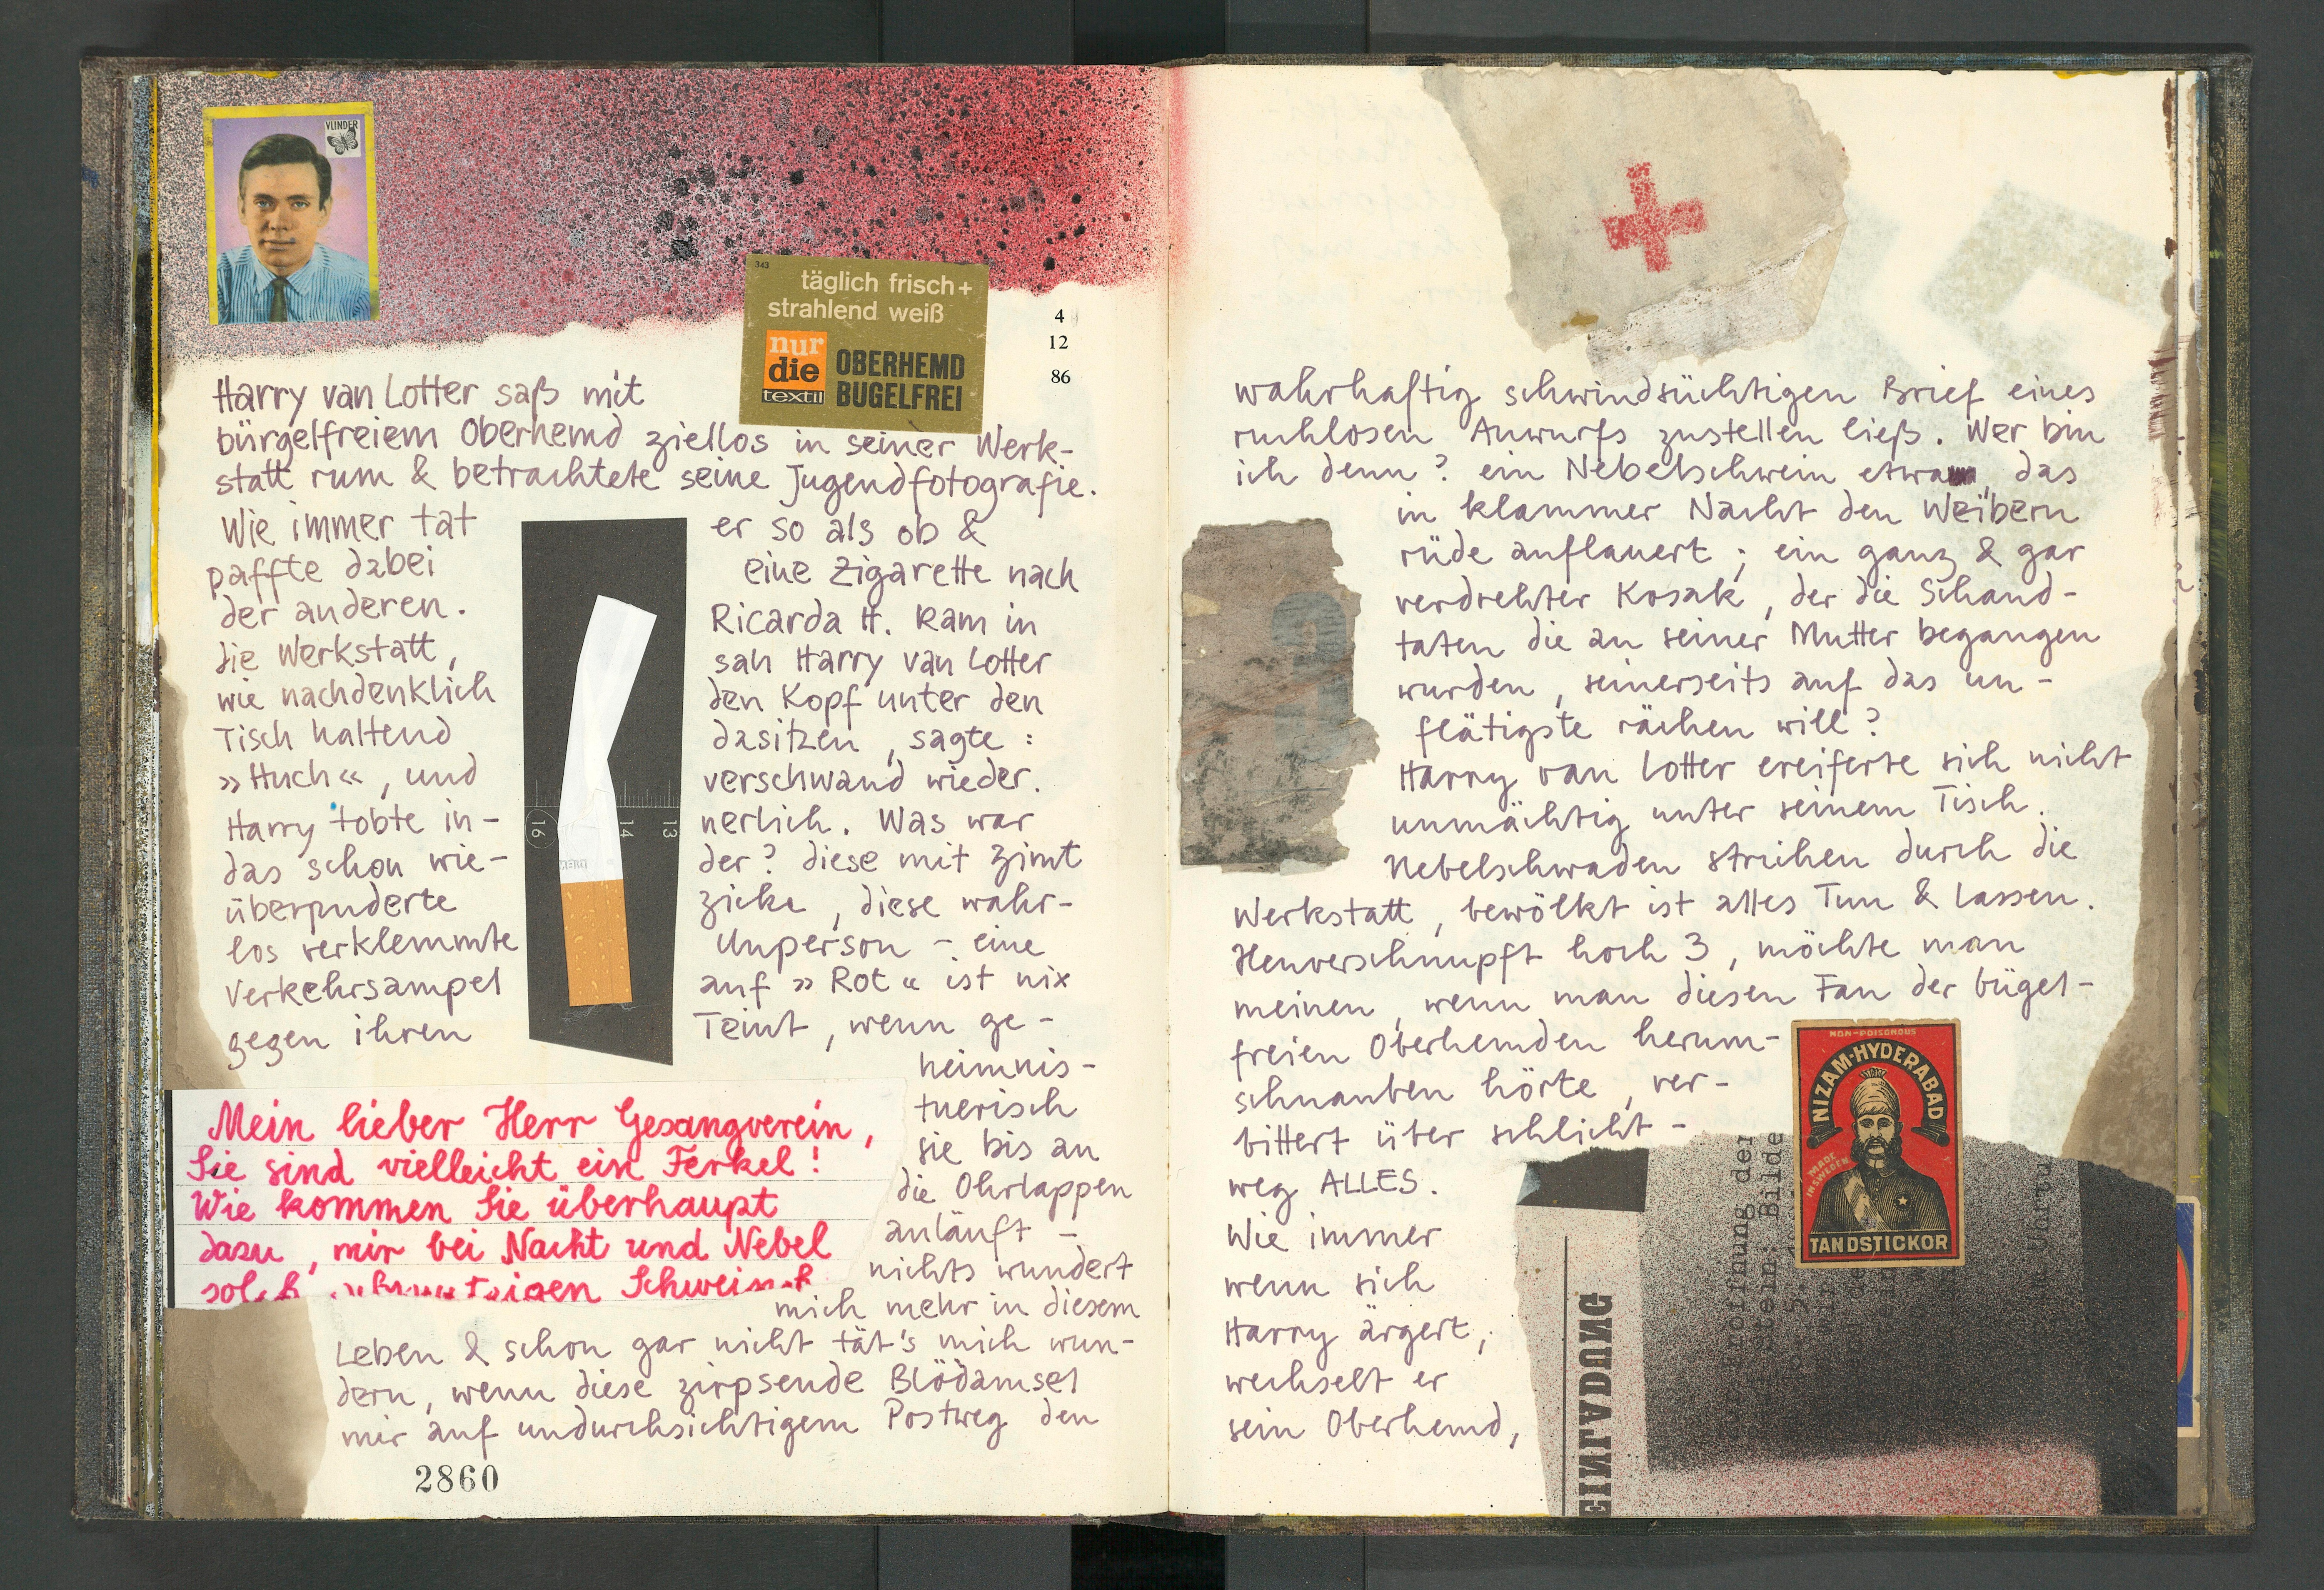 VLINDER
343
täglich frisch+
strahlend weiß
nur
die
textil
OBERHEMD
BUGELFREI
4
12
86
Harry van Lotter saß mit
bürgelfreiem Oberhemd ziellos in seiner Werk-
statt rum & betrachtete seine Jugendfotografie.
Wie immer tat er so als ob &
paffte dabei eine Zigarette nach
der anderen. Ricarda H. kam in
die Werkstatt, sah Harry van Lotter
wie nachdenklich den Kopf unter den
Tisch haltend dasitzen, sagte:
»Huch«, und verschwand wieder.
Harry tobte in- nerlich. Was war
das schon wie- der? diese mit Zimt
überpuderte Zicke, diese wahr-
los verklemmte Unperson – eine
Verkehrsampel auf »Rot« ist nix
gegen ihren Teint, wenn ge-
heimnis-
tuerisch
sie bis an
die Ohrlappen
anläuft –
nichts wundert
mich mehr in diesem
Leben & schon gar nicht tät's mich wun-
dern, wenn diese zirpsende Blödamsel
mir auf undurchsichtigem Postweg den
16
14
13
Mein lieber Herr Gesangverein,
Sie sind vielleicht ein Ferkel!
Wie kommen Sie überhaupt
dazu, mir bei Nacht und Nebel
2860
wahrhaftig schwindsüchtigen Brief eines
ruchlosen Anwurfs zustellen ließ. Wer bin
ich denn? ein Nebelschwein etwa, das
in klammer Nacht den Weibern
rüde auflauert; ein ganz & gar
verdrehter Kosak, der die Schand-
taten die an seiner Mutter begangen
wurden, seinerseits auf das un-
flätigste rächen will?
Harry van Lotter ereiferte sich nicht
unmächtig unter seinem Tisch.
Nebelschwaden strichen durch die
Werkstatt, bewölkt ist alles Tun & Lassen.
Heuverschnupft hoch 3, möchte man
meinen, wenn man diesen Fan der bügel-
freien Oberhemden herum-
schnauben hörte, ver-
bittert über schlicht-
weg ALLES.
Wie immer
wenn sich
Harry ärgert,
wechselt er
sein Oberhemd,
NON-POISONOUS
NIZAM-HYDERABAD
MADE
IN SWEDEN
TANDSTICKOR
EINLADUNG
Eröffnung der
Bilde